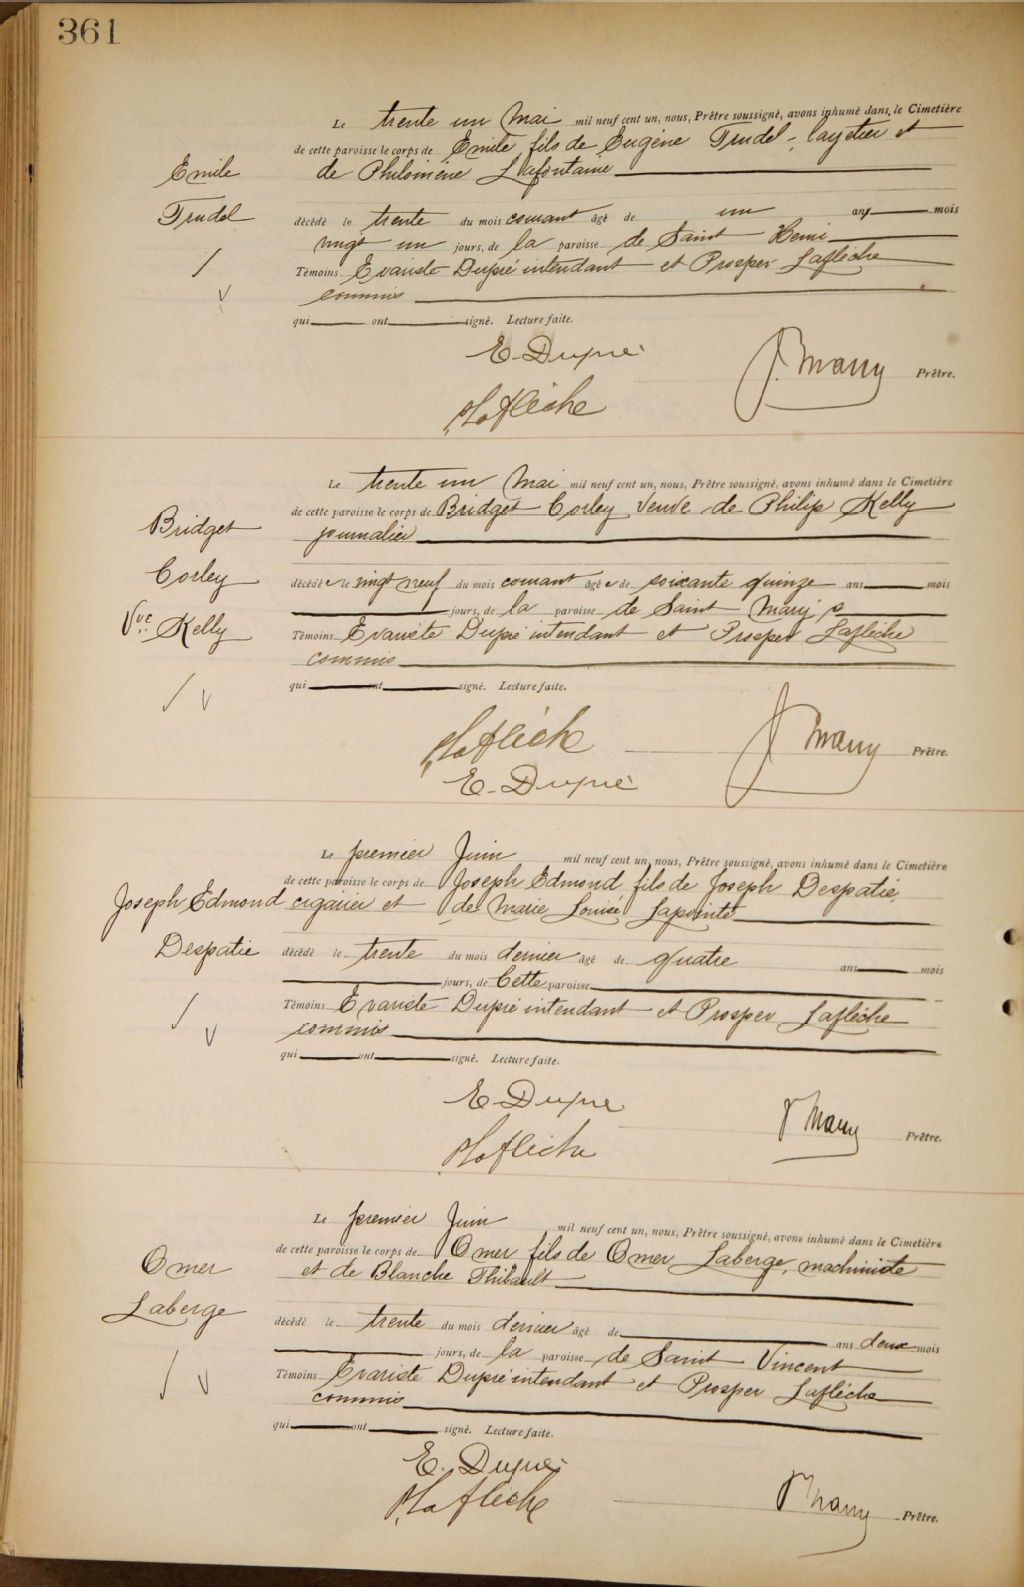 361
Le trente un Mai mil neuf cent un, nous, Prêtre soussigné, avons inhumé dans le Cimetière
de cette paroisse le corps de Emile fils de Eugène Trudel, layetier et
Emile
de Philomène Lafontaine
Trudel
décédé le trente du mois courant âgé de un ans mois
vingt un jours, de la paroisse de Saint Henri
Témoins Evariste Dupré intendant et Prosper Laflèche
commis
qui ont signé. Lecture faite.
E. Dupré
Prêtre.
PLaflèche
Le trente un Mai mil neuf cent un, nous, Prêtre soussigné, avons inhumé dans le Cimetière
de cette paroisse le corps de Bridget Corley Veuve de Philip Kelly
Bridget
journalier
Corley
décédée le vingt neuf du mois courant âgée de soixante quinze ans mois
jours, de la paroisse de Saint Mary's
Vve Kelly
Témoins Evariste Dupré intendant et Prosper Laflèche
commis
qui ont signé. Lecture faite.
PLaflèche
Prêtre.
E. Dupré
Le premier Juin mil neuf cent un, nous, Prêtre soussigné, avons inhumé dans le Cimetière
de cette paroisse le corps de Joseph Edmond fils de Joseph Despatie,
Joseph Edmond
cigarier et de Marie Louise Lapointe
Despatie
décédé le trente du mois dernier âgé de quatre ans mois
jours, de Cette paroisse
Témoins Evariste Dupré intendant et Prosper Laflèche
commis
qui ont signé. Lecture faite.
E. Dupré
Prêtre.
PLaflèche
Le premier Juin mil neuf cent un, nous, Prêtre soussigné, avons inhumé dans le Cimetière
de cette paroisse le corps de Omer fils de Omer Laberge, machiniste
Omer
et de Blanche Thibault
Laberge
décédé le trente du mois dernier âgé de ans deux mois
jours, de la paroisse de Saint Vincent
Témoins Evariste Dupré intendant et Prosper Laflèche
commis
qui ont signé. Lecture faite.
E. Dupré
PLaflèche
Prêtre.